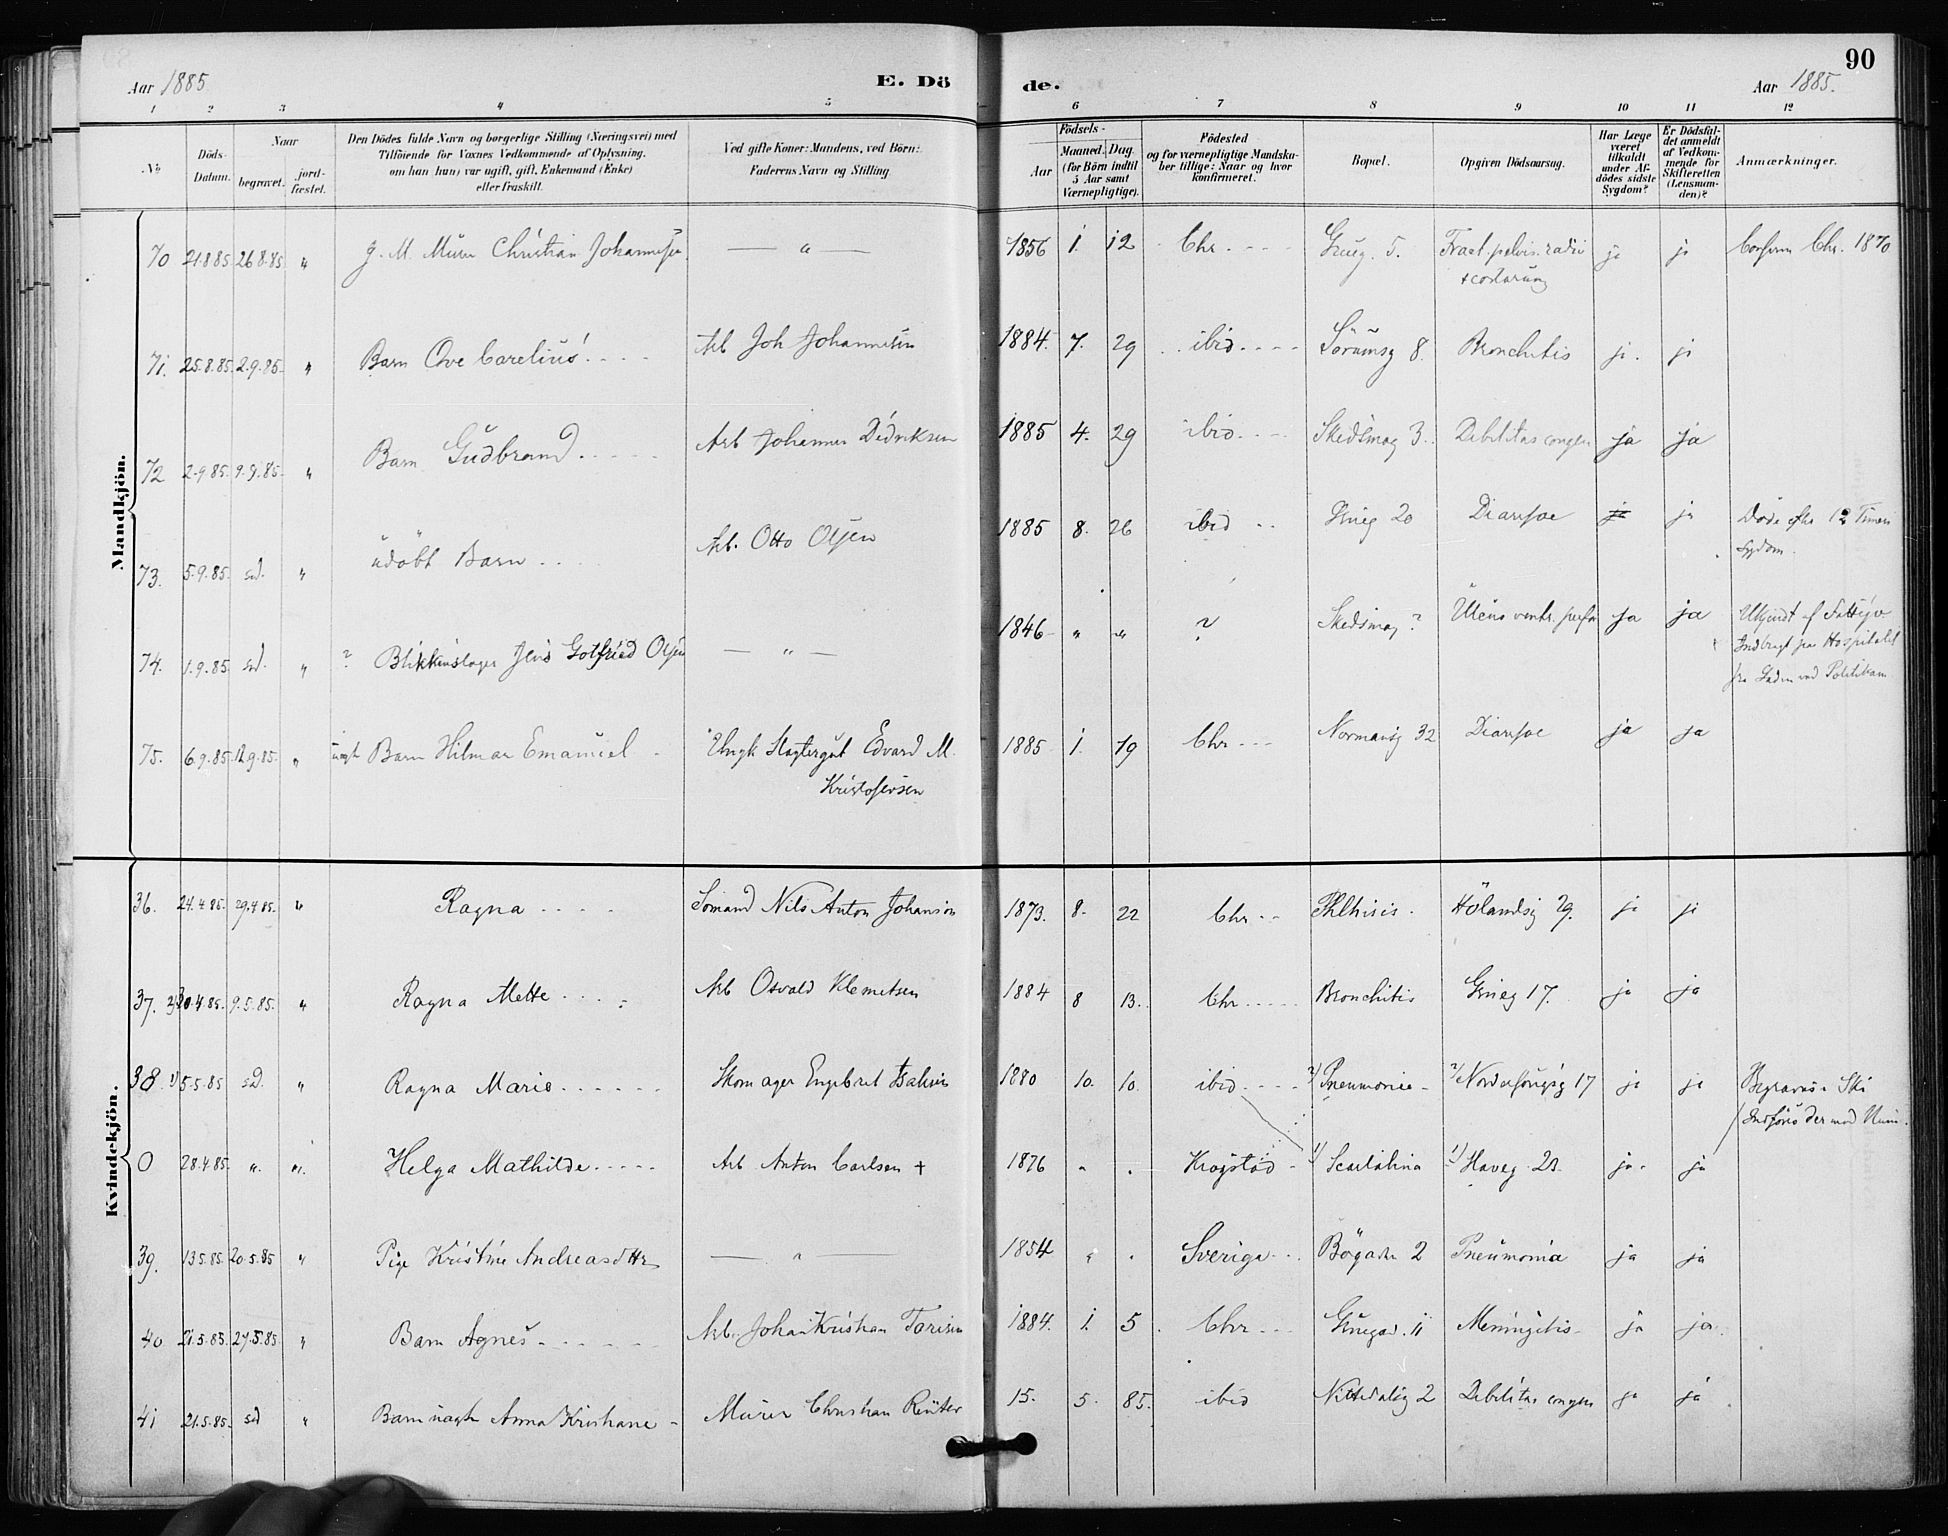 90
Aar 1885
E. Dö
de.
Aar 1885.
1 2 3 4 5 6 7 8 9 10 11 12
No
Döds-Datum.
Naar
begravet.
jord-fæstet.
Den Dödes fulde Navn og borgerlige Stilling (Næringsvei) med
Tilföiende for Voxnes Vedkommende af Oplysning,
om han (hun) var ugift, gift, Enkemand (Enke)
eller fraskilt.
Ved gifte Koner: Mandens, ved Börn:
Faderens Navn og Stilling.
Födsels-
Aar
Maaned. Dag.
(for Börn indtil
5 Aar samt
Værnepligtige).
Födested
og for værnepligtige Mandska-
ber tillige: Naar og hvor
konfirmeret.
Bopæl.
Opgiven Dödsaarsag.
Har Læge
været
tilkaldt
under Af-
dödes sidste
Sygdom?
Er Dödsfal-
det anmeldt
af Vedkom-
mende for
Skifteretten
(Lensman-
den)?
Anmærkninger.
Mandkjön.
70 21.8.85 26.8.85 " g. M. Murer Christian Johannesen — " — 1856 1. 12 Chr. Grueg. 5. Fract. pelvis. radii ja ja Chr. 1870
+ costarum
71. 25.8.85. 2.9.85. " Barn Ove Carelius Arb Joh Johannesen 1884. 7. 29 ibid Sörumsg 8. Bronchitis ja. ja
72 2.9.85. 9.9.85. " Barn Gudbrand Arb Johannes Didriksen 1885 4. 29 ibid Skedsmog 3. Debilitas congen ja ja
73. 5.9.85. sd. " udöbt Barn Arb. Otto Olsen 1885 8. 26 ibid Grueg 20 Diarrhoe ja ja Döde efter 12 Timers
Sygdom.
74. 1.9.85. sd. " ? Blikkenslager Jens Gotfried Olsen — " — 1846 " " ? Skedsmog ? Ulcus ventr. perfor ja ja Ukjendt af Fattigv.
Indbragt paa Hospitalet
fra Gaden ved Politikam.
75. 6.9.85. 12.9.85. " uægte Barn Hilmar Emanuel Ungk Slagtergut Edvard M. 1885 1. 19 Chr Normansg 32 Diarrhoe ja ja
Kristofersen
Kvindekjön.
36. 24.4.85. 29.4.85. " Ragna Sömand Nils Anton Johanson 1873. 8. 22 Chr Phthisis. Hölandsg 29. ja ja
37. 30.4.85. 9.5.85. " Ragna Mette Arb Osvald Klemetsen 1884 8 13. Chr Bronchitis Grueg 17. ja ja
38. 5.5.85 sd. " Ragna Marie Skomager Engebret Isaksen 1880 10. 10. ibid 2/ Pneumonie 2/ 17 ja ja Begraves i Ski
Indföres der med Num.
0 28.4.85. ". ". Helga Mathilde Arb Anton Carlsen + 1876 " . Krogstad 1/ Scarlatina 1/ Haveg. ja. ja
39. 13.5.85. 20.5.85 " Pige Kristine Andreasdttr — " — 1854 " . Sverige Bögaden 2 Pneumonia ja ja
40 21.5.85. 27.5.85 " Barn Agnes Arb. Johan Kristian 1884. 1. 5. Chr Gruegad. 11 Meningitis ja ja.
41 21.5.85. sd " Barn uægte Anna Kristiane Murer Christian Reuter 15. 5. 85. ibid Nittedalsg 2 Debilitas congen ja ja